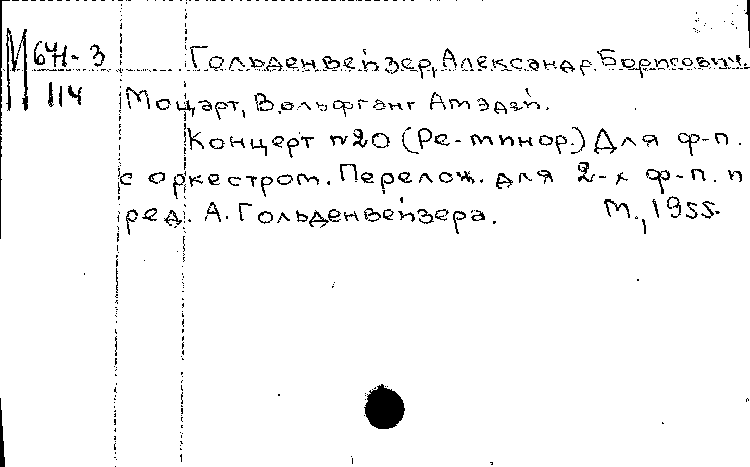 М 671-3 Гольденвейзер, Александр Борисович.
114 Моцарт, Вольфганг Амадей.
Концерт №20 (Ре-минор.) Для ф-п.
с оркестром. Перелож. для 2-х ф-п. и
ред. А. Гольденвейзера. М., 1955.